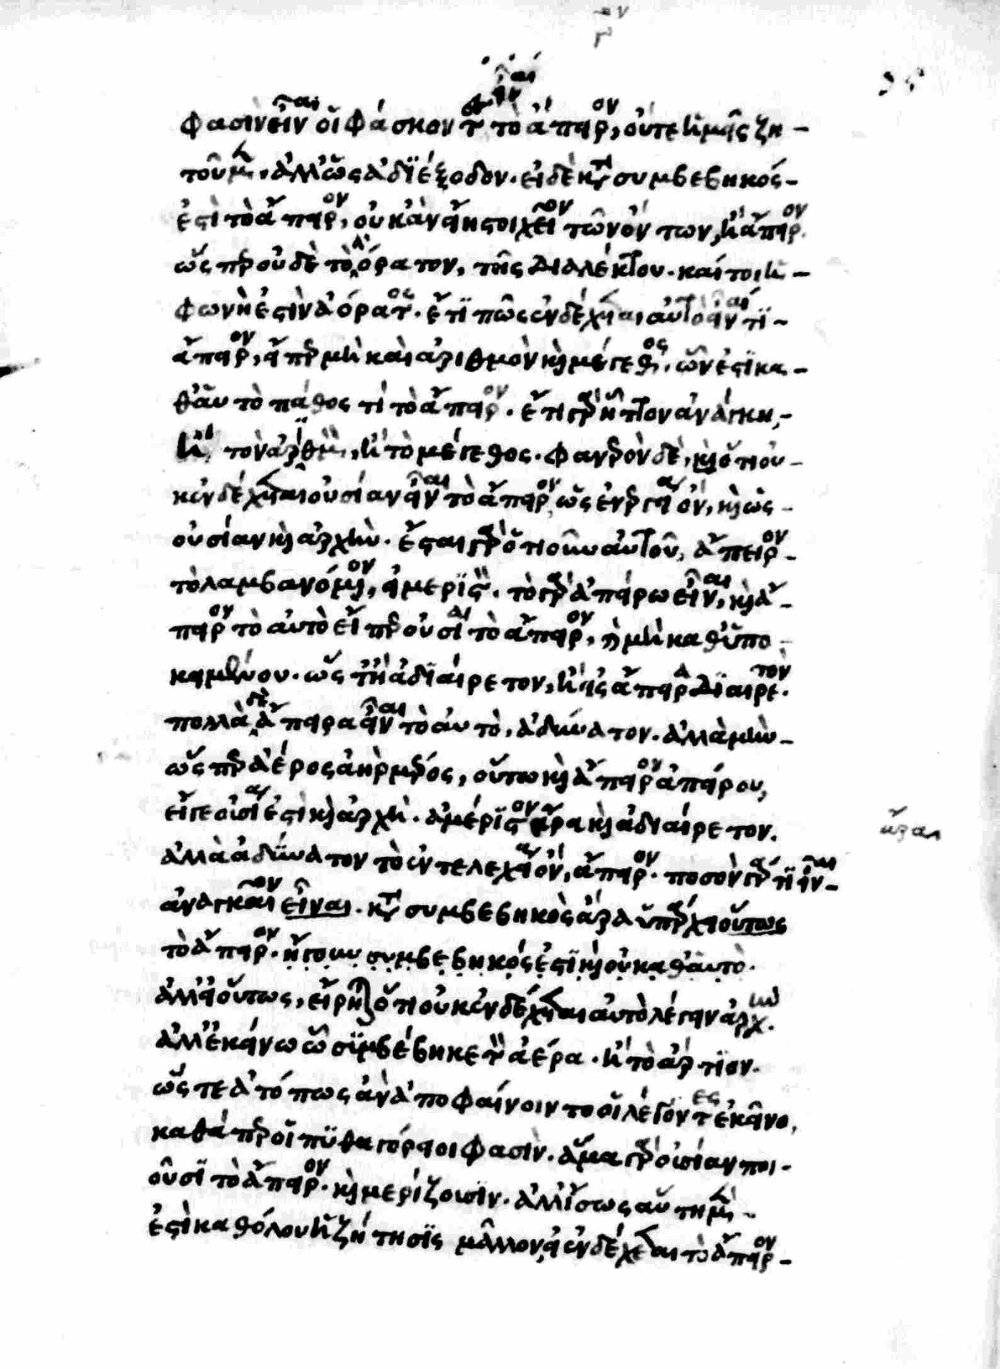 φασὶν εἶναι οἱ φάσκοντες τὸ ἄπειρον, οὔτε ἡμεῖς ζη-
τοῦμεν, ἀλλ' ὡς ἀδιέξοδον. εἰ δὲ κατὰ συμβεβηκός-
ἐστι τὸ ἄπειρον, οὐκ ἂν εἴη στοιχεῖον τῶν ὄντων, ᾗ ἄπειρον.
ὥσπερ οὐδὲ τὸ ἀόρατον, τῆς διαλέκτου. καίτοι ἡ-
φωνή ἐστιν ἀόρατος. ἔτι πῶς ἐνδέχεται αὐτὸ εἶναί τι-
ἄπειρον, εἴπερ μὴ καὶ ἀριθμὸν καὶ μέγεθος, ὧν ἐστι κα-
θ' αὑτὸ πάθος τι τὸ ἄπειρον. ἔτι γὰρ ἧττον ἀνάγκη,-
ἢ τὸν ἀριθμὸν, ἢ τὸ μέγεθος. φανερὸν δὲ, καὶ ὅτι οὐ-
κ ἐνδέχεται οὐσίαν εἶναι τὸ ἄπειρον ὡς ἐνεργείᾳ ὄν, καὶ ὡς-
οὐσίαν καὶ ἀρχήν. ἔσται γὰρ ὁτιοῦν αὐτοῦ, ἄπειρον-
τὸ λαμβανόμενον, εἰ μεριστόν. τὸ γὰρ ἀπείρῳ εἶναι, καὶ ἄ-
πειρον τὸ αὐτὸ εἴπερ οὐσία τὸ ἄπειρον, καὶ μὴ καθ' ὑπο-
κειμένου. ὥστ' ἢ ἀδιαίρετον, ἢ εἰς ἄπειρα διαιρετόν.
πολλὰ δ' ἄπειρα εἶναι τὸ αὐτὸ, ἀδύνατον. ἀλλὰ μὴν-
ὥσπερ ἀέρος ἀὴρ μέρος, οὕτω καὶ ἄπειρον ἀπείρου,
εἴγε οὐσία ἐστὶ καὶ ἀρχή. ἀμέριστον ἄρα καὶ ἀδιαίρετον.
ἀλλὰ ἀδύνατον τὸ ἐντελεχείᾳ ὄν, ἄπειρον. ποσὸν γάρ τι εἶναι-
ἀναγκαῖον εἶναι. κατὰ συμβεβηκὸς ἄρα ὑπάρχει οὕτως
τὸ ἄπειρον. ἤγουν συμβεβηκός ἐστι καὶ οὐ καθ' αὑτό.
ἀλλ' εἰ οὕτως, εἴρηται ὅτι οὐκ ἐνδέχεται αὐτὸ λέγειν ἀρχήν.
ἀλλ' ἐκείνῳ ᾧ συμβέβηκε τὸν ἀέρα. ἢ τὸ ἄρτιον.
ὥστε ἀτόπως ἂν ἀποφαίνοιντο οἱ λέγοντες ἐκεῖνο,
καθάπερ οἱ πυθαγόρειοι φασίν. ἅμα γὰρ οὐσίαν ποι-
οῦσι τὸ ἄπειρον. καὶ μερίζουσιν. ἀλλ' ἴσως αὕτη μὲν-
ἐστὶ καθόλου ἡ ζήτησις μᾶλλον, εἰ ἐνδέχεται τὸ ἄπειρον-